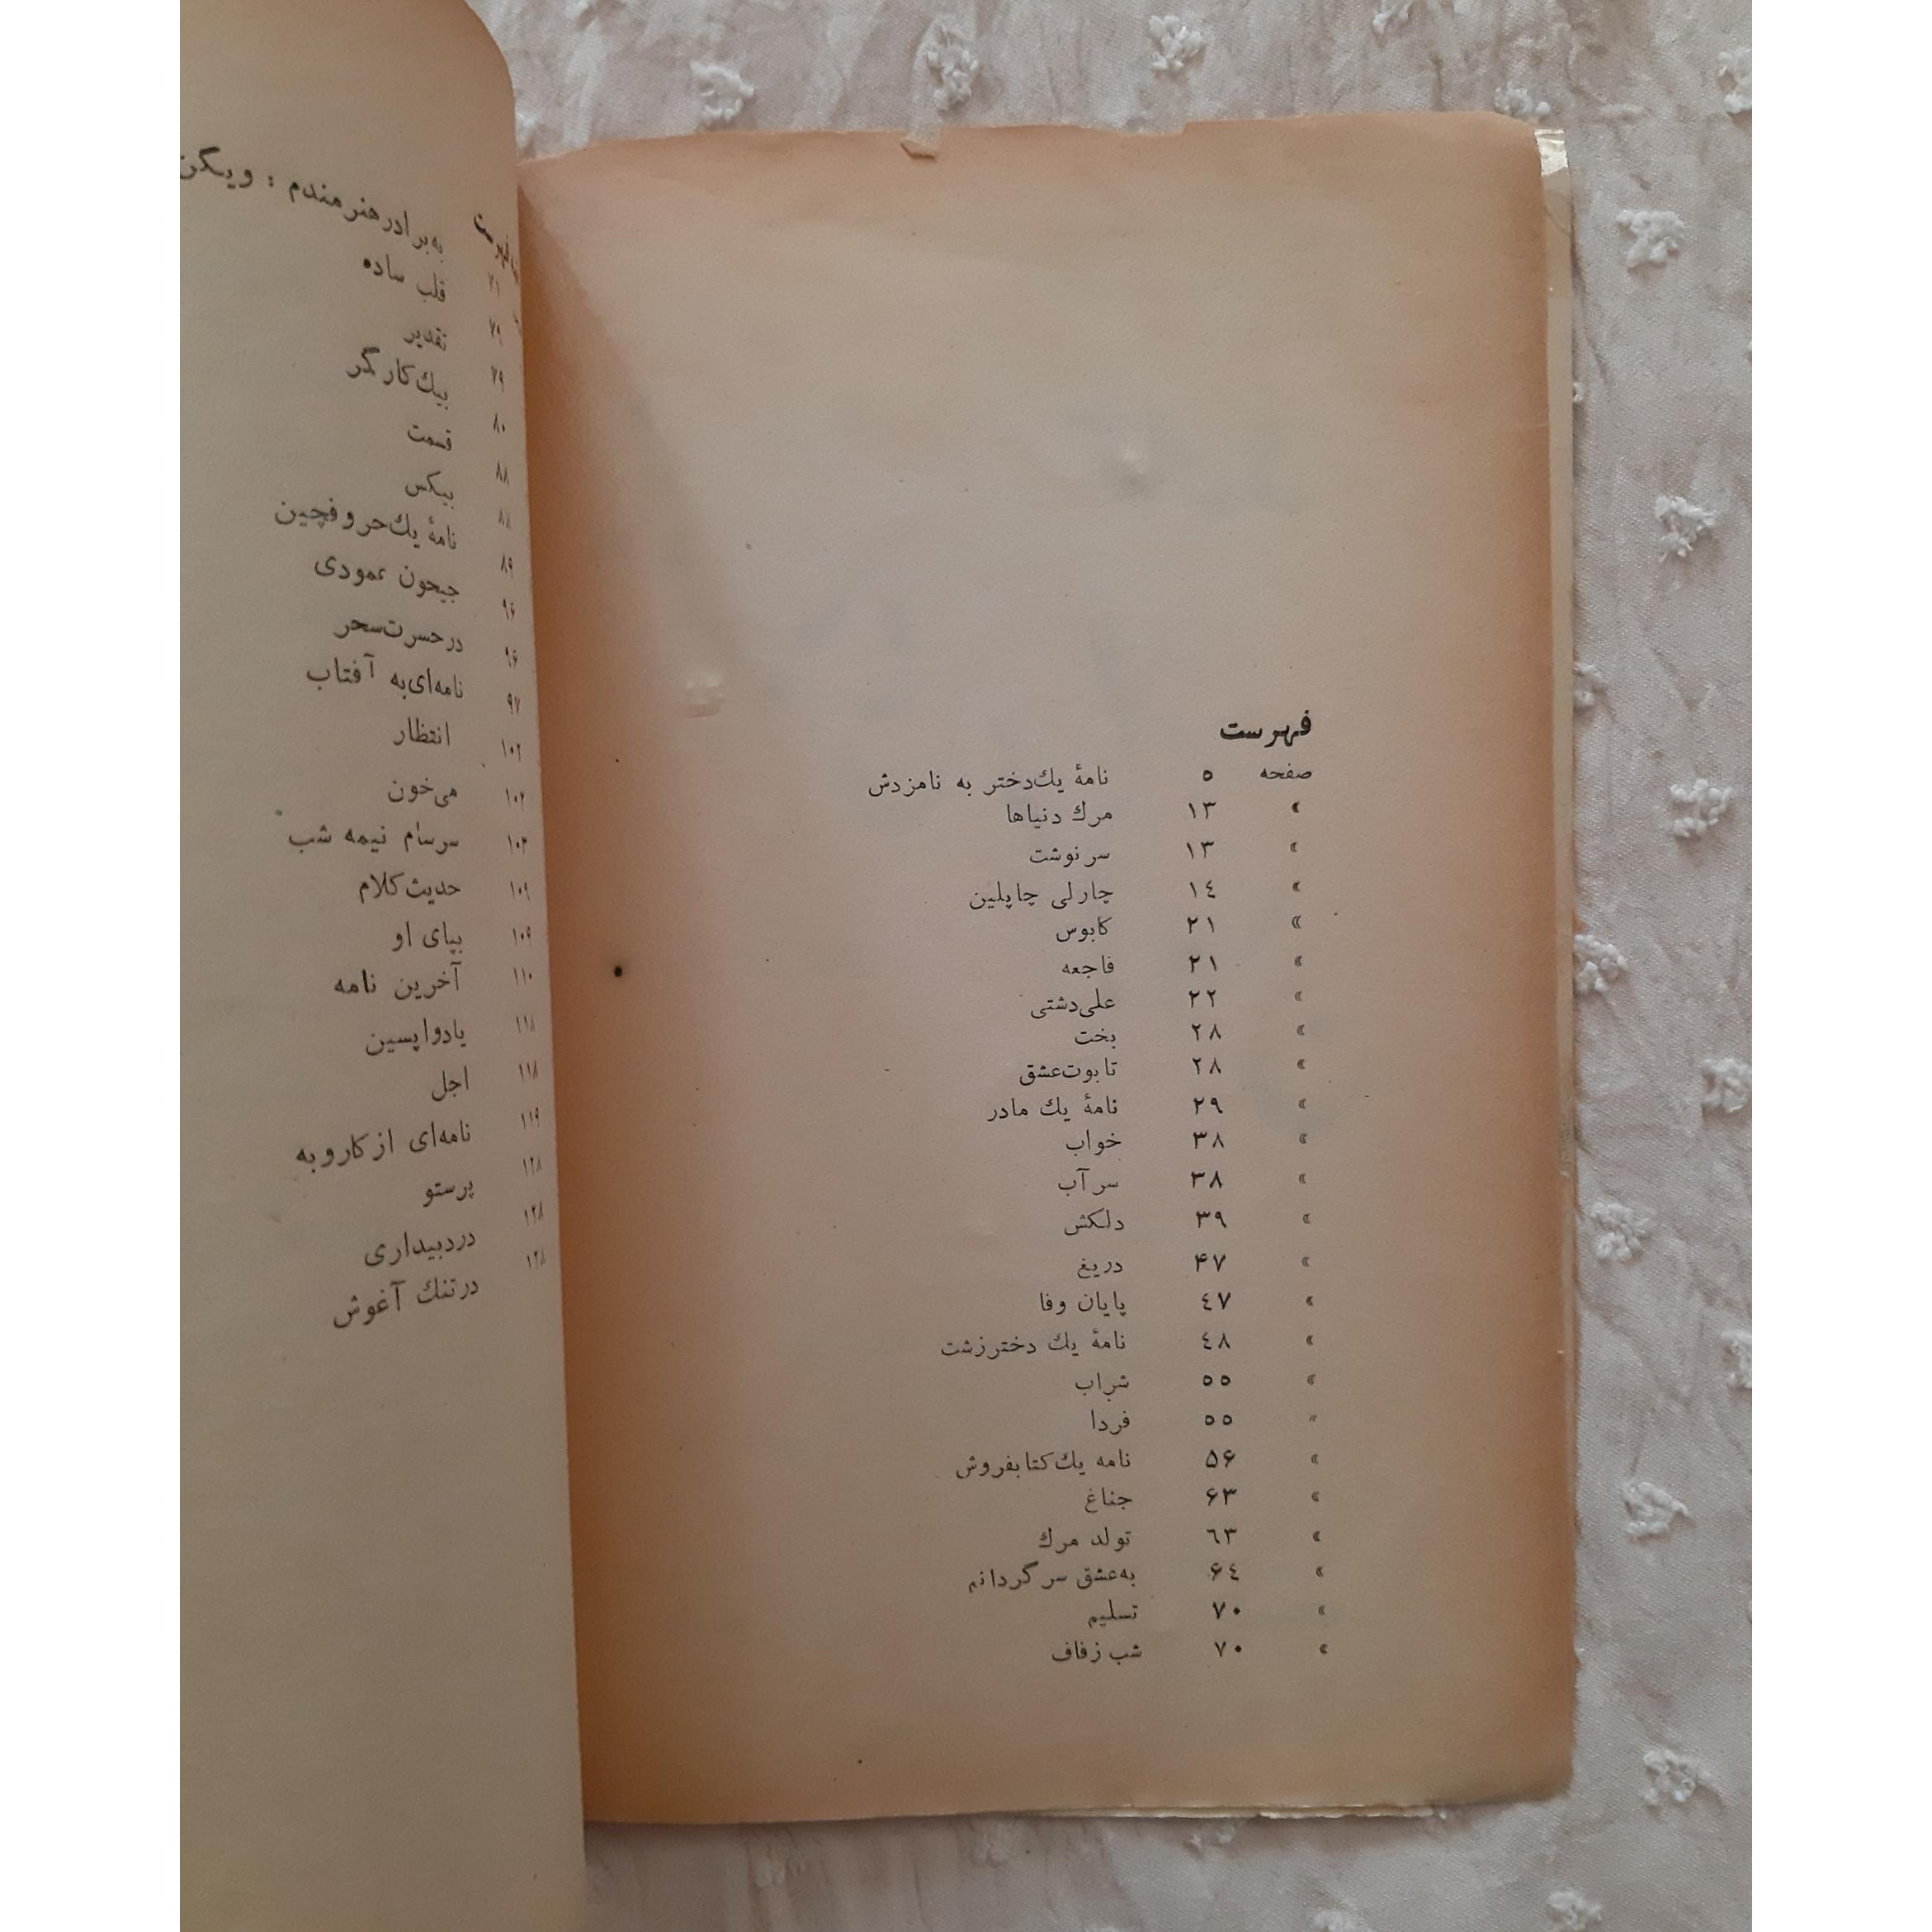 فهرست
صفحه ۵ نامهٔ یك‌دختر به نامزدش
» ۱۳ مرك دنیاها
» ۱۳ سرنوشت
» ۱٤ چارلی چاپلین
» ۲۱ کابوس
» ۲۱ فاجعه
» ۲۲ علی‌دشتی
» ۲۸ بخت
» ۲۸ تابوت‌عشق
» ۲۹ نامهٔ یك مادر
» ۳۸ خواب
» ۳۸ سرآب
» ۳۹ دلکش
» ۴۷ دریغ
» ٤۷ پایان وفا
» ٤۸ نامهٔ یك دختر‌زشت
» ۵۵ شراب
» ۵۵ فردا
» ۵۶ نامه یك‌کتابفروش
» ۶۳ جناغ
» ٦۳ تولد مرك
» ۶٤ به‌عشق سرگردانم
» ۷۰ تسلیم
» ۷۰ شب زفاف
فهرست
۷۱ به‌برادر‌هنرمندم : ویگن
۷۹ قلب ساده
۷۹ تقدیر
۸۰ بیك‌کارگر
۸۸ قسمت
۸۸ بیکس
۸۹ نامهٔ یك‌حروفچین
۹۶ جیحون عمودی
۹۶ در‌حسرت‌سحر
۹۷ نامه‌ای‌به آفتاب
۱۰۲ انتظار
۱۰۲ می‌خون
۱۰۳ سرسام نیمه شب
۱۰۹ حدیث‌کلام
۱۰۹ بپای او
۱۱۰ آخرین نامه
۱۱۸ یاد‌واپسین
۱۱۸ اجل
۱۱۹ نامه‌ای از‌کارو‌به
۱۲۸ پرستو
۱۲۸ درد‌بیداری
۱۲۸ در‌تنك آغوش